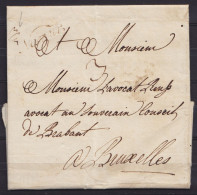 A Monsieur
Monsieur Lavocat
avocat au Souverain Conseil
de Brabant
a Bruxelles